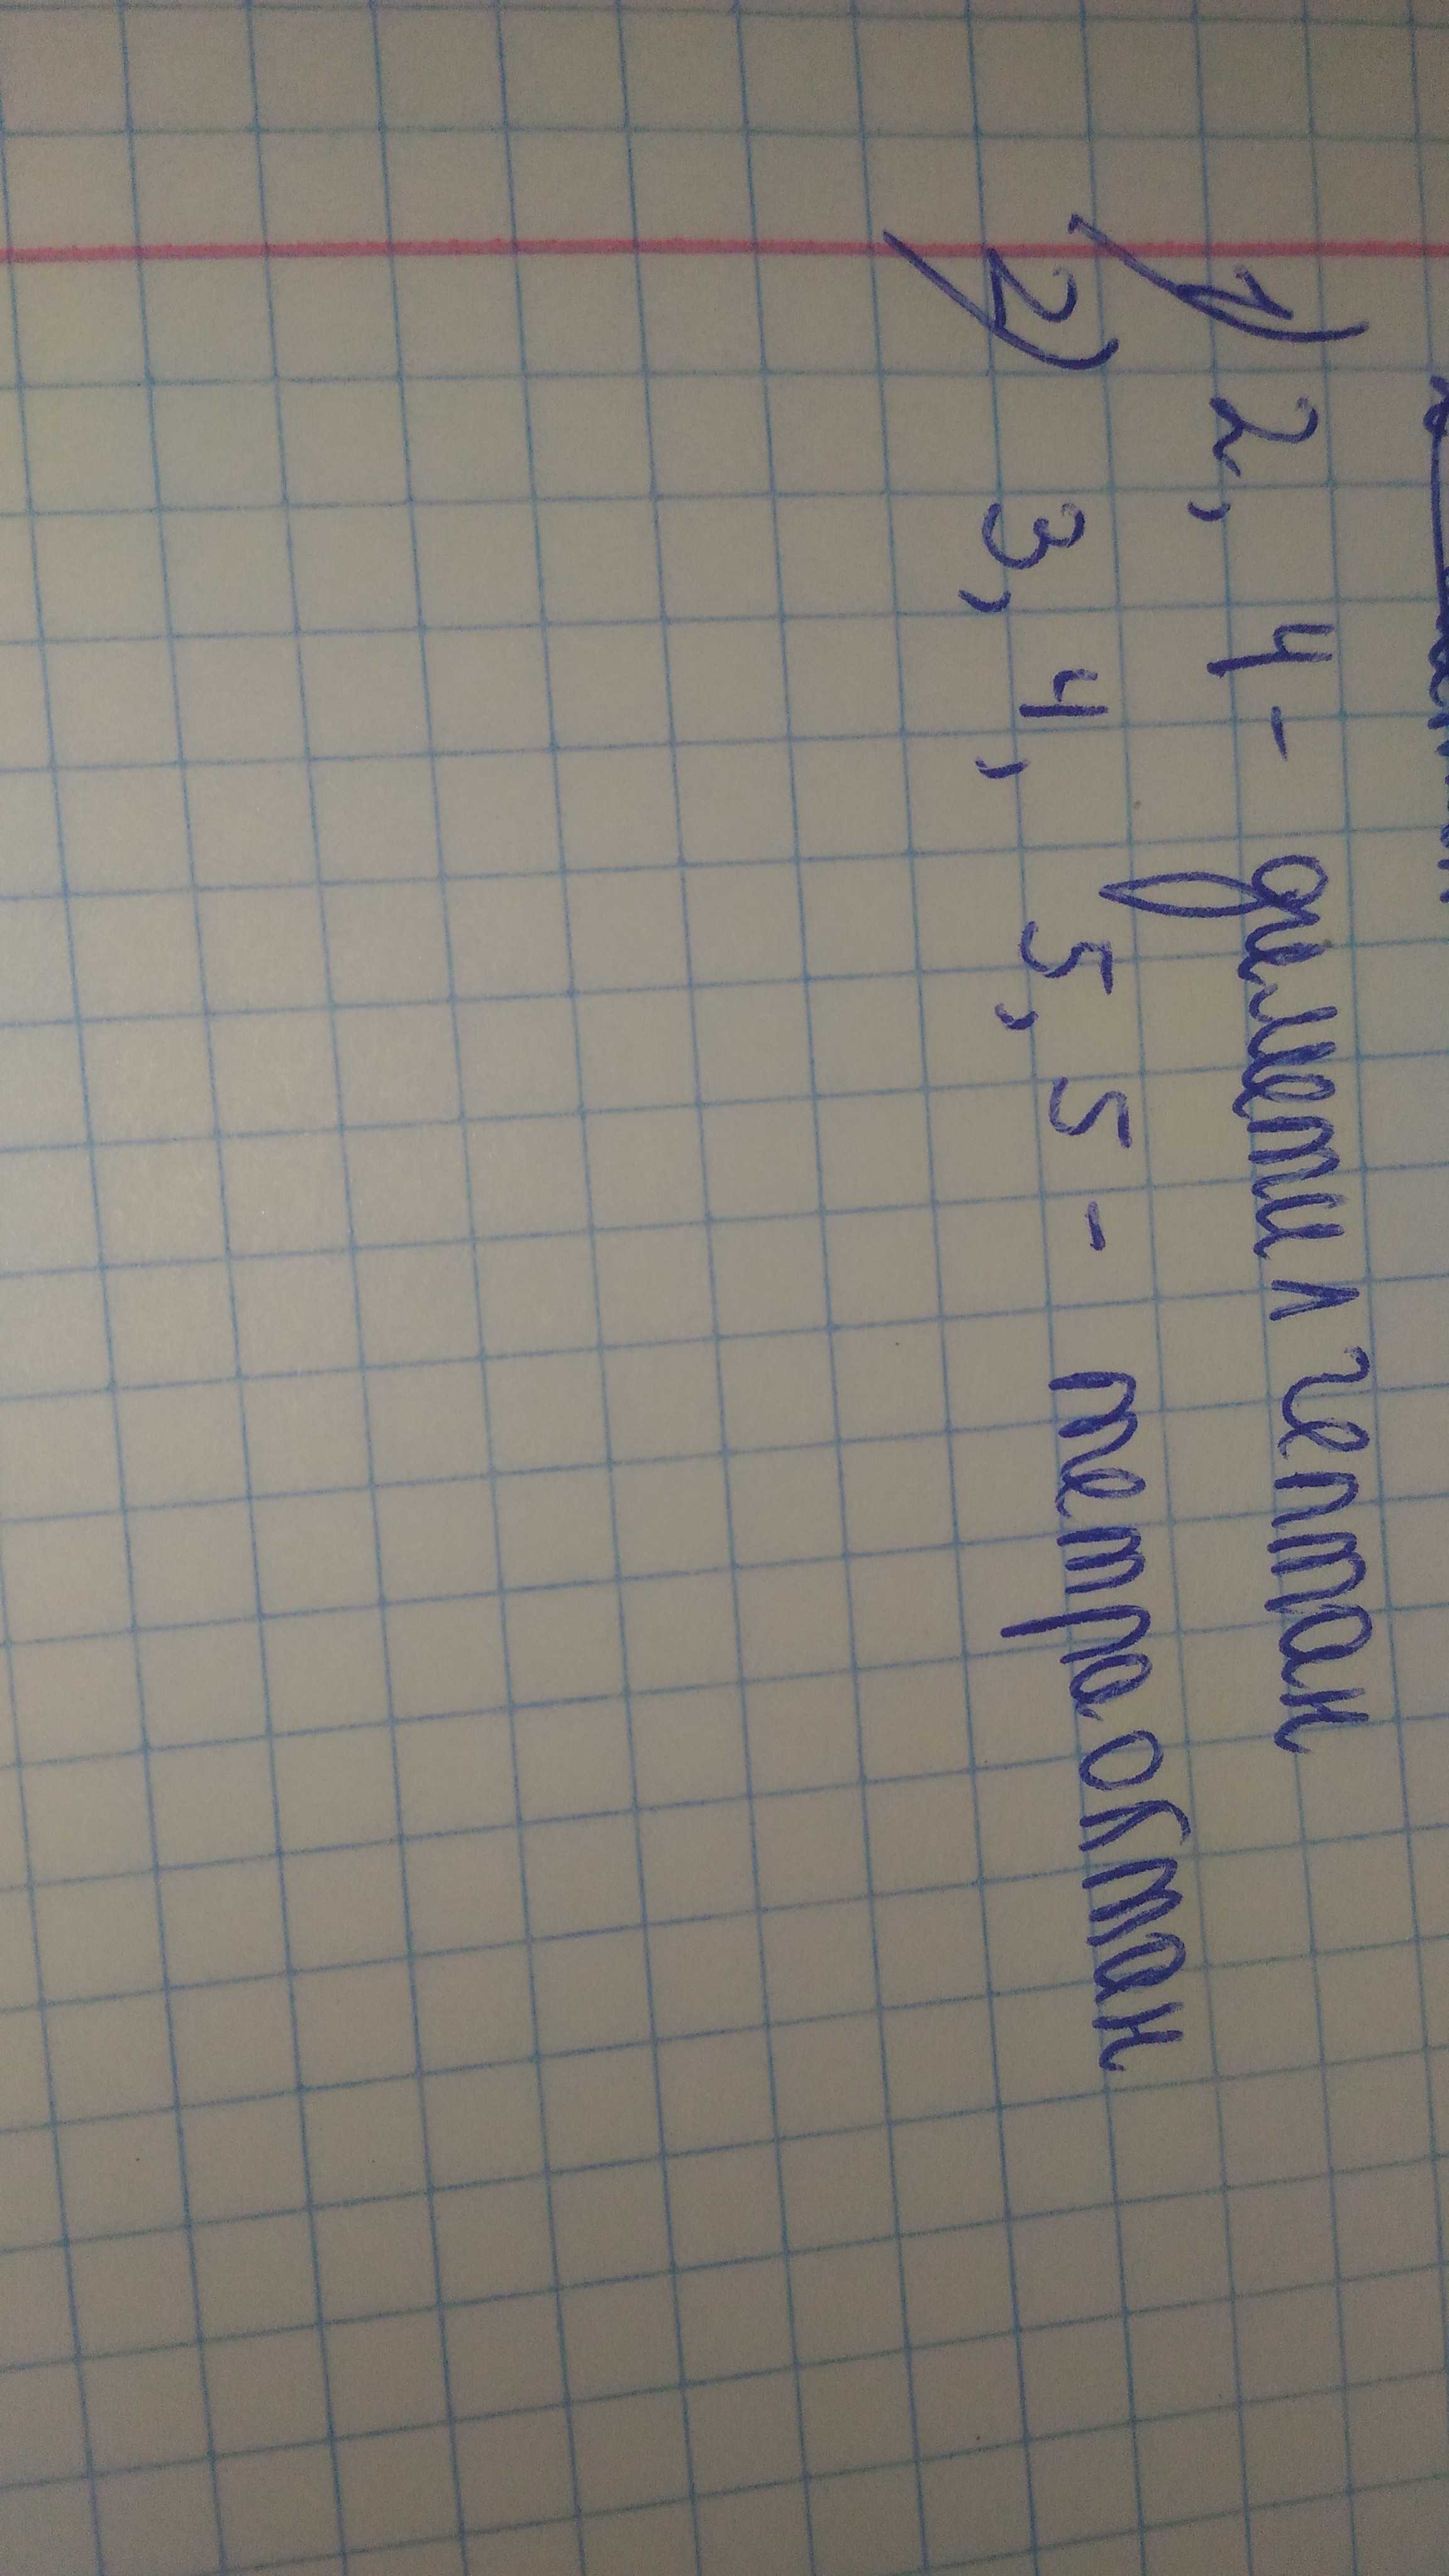 1) 2, 4 - диметил гептан
2) 3, 4, 5, 5 - тетра октан